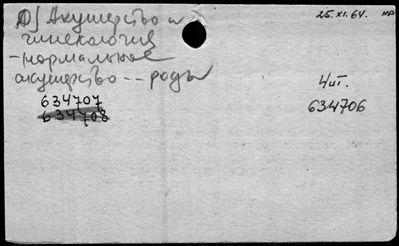 Акушерство и
гинекология
-нормальное
акушерство -- роды
634707
634708
25.XI.64. НР
4 шт.
634706